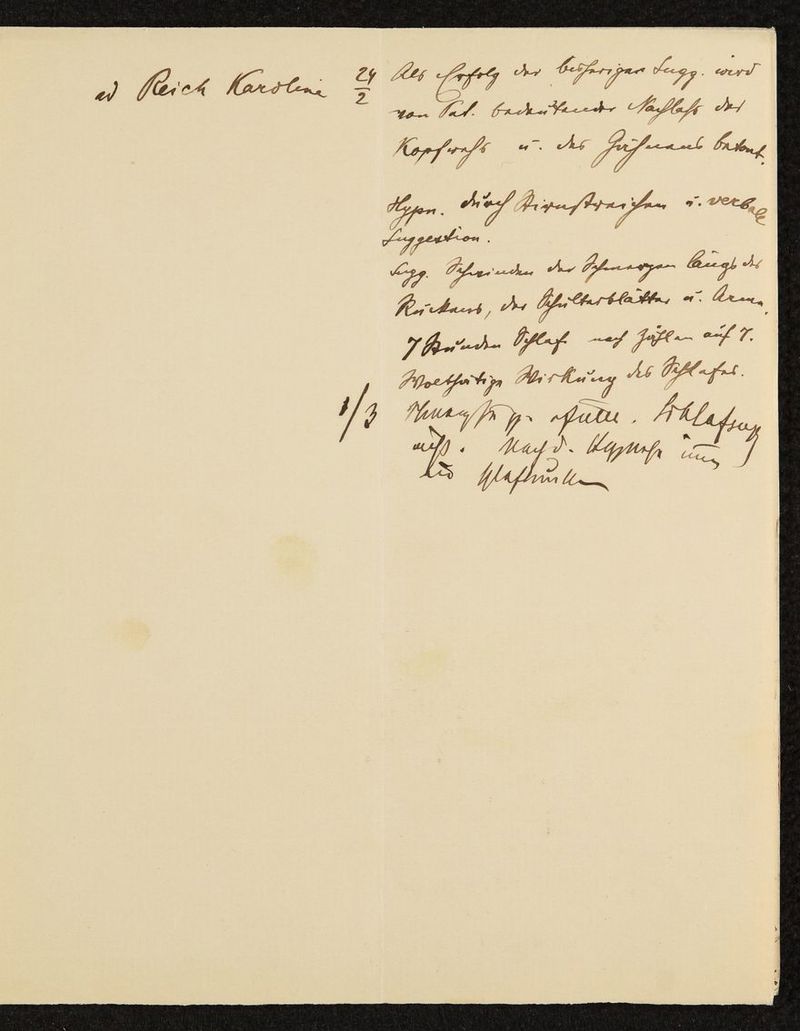 ad Reich Karoline 24/2 Als Erfolg der bisherigen Sugg. wird
von Pat. bedeutender Nachlaß des
Kopfwehs u. des Gähnens betont.
Hypn. durch Stirnstreichen u. verbale
Suggestion.
Sugg. Schwinden der Schmerzen längs des
Rückens, der Schulterblätter u. Arme.
7 Stunden Schlaf nach Zählen auf 7.
Wolthätige Wirkung des Schlafes.
1/3
nach d. Hypnose